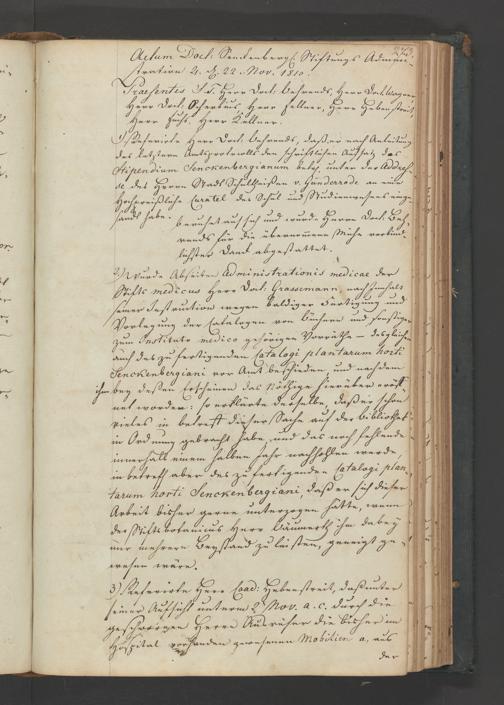 Actum Doct. Senckenberg. Stiftungs Admini-
stration d. 22. Nov. 1810.
Praesentes S.T. Herr Doct. Behrends, Herr Doct.
Herr Doct. Herr Fellner, Herr Hebenstreit,
Herr Fuchs, Herr Kellner.
1) Referirte Herr Doct. Behrends, daß er nach Anleitung
des letztern Amtsprotocolls den schriftlichen Aufsatz, das
Stipendium Senckenbergianum betr. unter der Addres-
se des Herrn Stadt Schultheißen v. Günderrode an eine
Hochpreißliche Curatel des Schul und Studienwesens einge-
sandt habe.
beruhet auf sich und wurde Herrn Doct. Beh-
rends für die übernommene Mühe verbind-
lichster Dank abgestattet.
2) Wurde Abseiten Administrationis medicae der
Stifts medicus Herr Doct. Grasemann, nach Inhalt
seiner Instruction wegen baldiger Fertigung und
Vorlegung der Catalogen von Büchern und sonstigen
zum Instituto medico gehörigen Vorräthe – desgleichen
auch des zu fertigenden Catalogi plantarum horti
Senckenbergiani vor Amt beschieden und nachdem
ihm bey dessen Erscheinen das Nöthige hierüber eröff-
net worden: so erklärte derselbe, daß er schon
vieles in betreff dieser Sache auf der Bibliothek
in Ordnung gebracht habe, und das noch fehlende
innerhalb einem halben Jahr nachhohlen werde,
in betreff aber des zu fertigenden Catalogi plan-
tarum horti Senckenbergiani, daß er sich dieser
Arbeit bisher gerne unterzogen hätte, wenn
der Stiftsbotanicus Herr Bäumertz ihm dabey
nur mehrern Beystand zu leisten, geneigt ge-
wesen wäre.
3) Referirte Herr Coad. Hebenstreit, daß unter
seiner Aufsicht unterm 2. Nov. a. c. durch die
geschwornen Herrn Ausrufer die bisher im
Hospital vorhanden gewesenen Mobilien a, aus
der